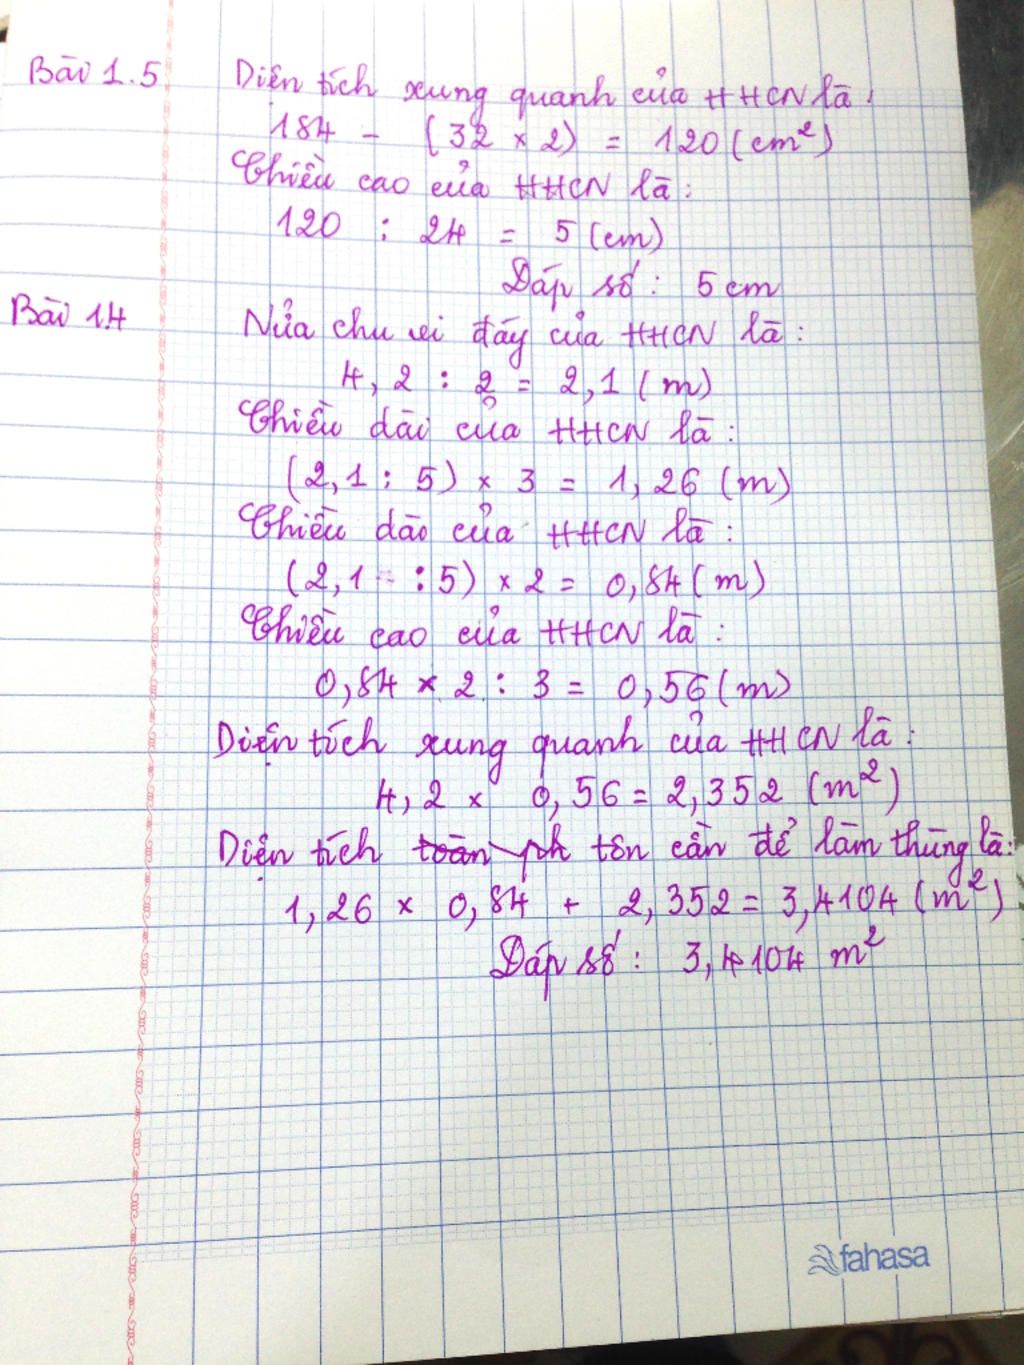 Bài 1.5 Diện tích xung quanh của HHCN là:
184 - (32 x 2) = 120 (cm²)
Chiều cao của HHCN là:
120 : 24 = 5 (cm)
Đáp số: 5 cm
Bài 1.4 Nửa chu vi đáy của HHCN là:
4,2 : 2 = 2,1 (m)
Chiều dài của HHCN là:
(2,1 : 5) x 3 = 1,26 (m)
Chiều dào của HHCN là:
(2,1 : 5) x 2 = 0,84 (m)
Chiều cao của HHCN là:
0,84 x 2 : 3 = 0,56 (m)
Diện tích xung quanh của HHCN là:
4,2 x 0,56 = 2,352 (m²)
Diện tích toàn ph tôn cần để làm thùng là:
1,26 x 0,84 + 2,352 = 3,4104 (m²)
Đáp số: 3,4104 m²
fahasa